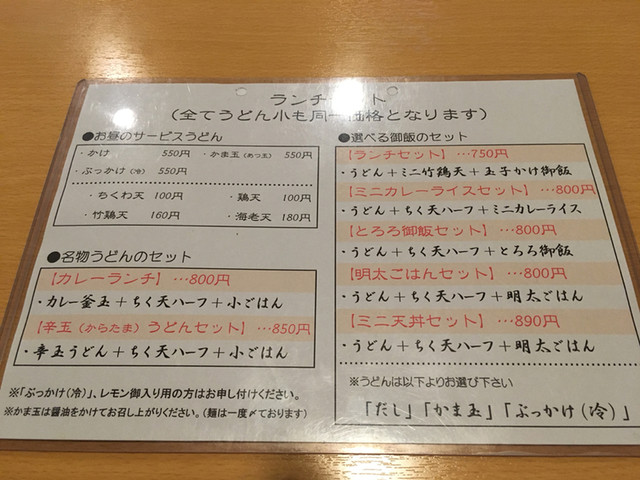 ランチセット
(全てうどん小も同一価格となります)
●お昼のサービスうどん
・かけ 550円 ・かま玉(あつ玉) 550円
・ぶっかけ(冷) 550円
・ちくわ天 100円 ・鶏天 100円
・竹鶏天 160円 ・海老天 180円
●名物うどんのセット
【カレーランチ】…800円
・カレー釜玉+ちく天ハーフ+小ごはん
【辛玉(からたま)うどんセット】…850円
・辛玉うどん+ちく天ハーフ+小ごはん
※「ぶっかけ(冷)」、レモン御入り用の方はお申し付けください。
※かま玉は醤油をかけてお召し上がりください。(麺は一度〆ております)
●選べる御飯のセット
【ランチセット】…750円
・うどん+ミニ竹鶏天+玉子かけ御飯
【ミニカレーライスセット】…800円
・うどん+ちく天ハーフ+ミニカレーライス
【とろろ御飯セット】…800円
・うどん+ちく天ハーフ+とろろ御飯
【明太ごはんセット】…800円
・うどん+ちく天ハーフ+明太ごはん
【ミニ天丼セット】…890円
・うどん+ちく天ハーフ+明太ごはん
※うどんは以下よりお選び下さい
「だし」「かま玉」「ぶっかけ(冷)」